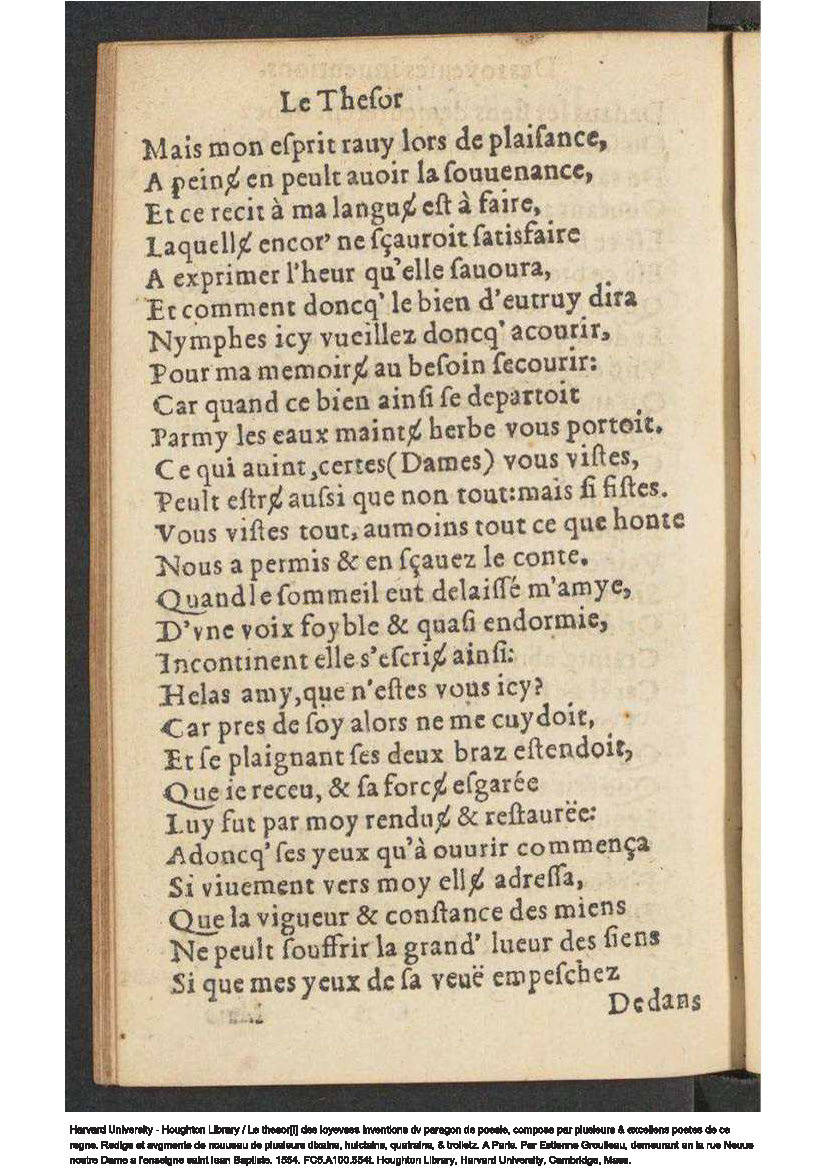 Le Theſor
Mais mon eſprit rauy lors de plaiſance,
A peinɇ en peult auoir la ſouuenance,
Et ce recit à ma languɇ eſt à faire,
Laquellɇ encor' ne ſçauroit ſatisfaire
A exprimer l'heur qu'elle ſauoura,
Et comment doncq' le bien d'eutruy dira
Nymphes icy vueillez doncq' acourir,
Pour ma memoirɇ au beſoin ſecourir:
Car quand ce bien ainſi ſe departoit
Parmy les eaux maintɇ herbe vous portoit.
Ce qui auint,certes(Dames) vous viſtes,
Peult eſtrɇ auſsi que non tout:mais ſi fiſtes.
Vous viſtes tout, aumoins tout ce que honte
Nous a permis & en ſçauez le conte.
Quand le ſommeil eut delaiſſé m'amye,
D'vne voix foyble & quaſi endormie,
Incontinent elle s'eſcriɇ ainſi:
Helas amy,que n'eſtes vous icy?
Car pres de ſoy alors ne me cuydoit,
Et ſe plaignant ſes deux braz eſtendoit,
Que ie receu, & ſa forcɇ eſgarée
Luy fut par moy renduɇ & reſtaurëe:
Adoncq' ſes yeux qu'à ouurir commença
Si viuement vers moy ellɇ adreſſa,
Que la vigueur & conſtance des miens
Ne peult ſouffrir la grand' lueur des ſiens
Si que mes yeux de ſa veuë empeſchez
Dedans
Harvard University - Houghton Library / Le thesor[i] des ioyevses inventions dv paragon de poesie, compose par plusieurs & excellens poetes de ce
regne. Redige et avgmente de nouueau de plusieurs dixains, huictains, quatrains, & trolletz. A Paris. Par Estienne Groulleau, demeurant en la rue Neuue
nostre Dame a l'enseigne saint Iean Baptiste. 1554. FC5.A100.554t. Houghton Library, Harvard University, Cambridge, Mass.